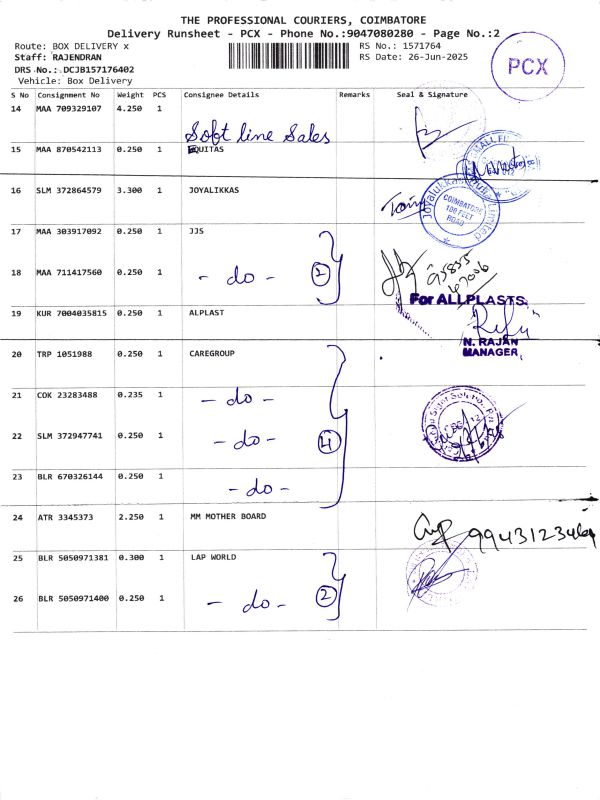 THE PROFESSIONAL COURIERS, COIMBATORE
Delivery Runsheet - PCX - Phone No.:9047080280 - Page No.:2
Route: BOX DELIVERY x RS No.: 1571764
Staff: RAJENDRAN RS Date: 26-Jun-2025
DRS No.: DCJB157176402
Vehicle: Box Delivery
PCX
S No Consignment No Weight PCS Consignee Details Remarks Seal & Signature
14 MAA 709329107 4.250 1
Soft line Sales
15 MAA 870542113 0.250 1 EQUITAS
16 SLM 372864579 3.300 1 JOYALIKKAS
Joyalukkas India Limited
COIMBATORE
100 FEET
ROAD
17 MAA 303917092 0.250 1 JJS
18 MAA 711417560 0.250 1 - do - 2
For ALLPLASTS
19 KUR 7004035815 0.250 1 ALPLAST
N. RAJAN
MANAGER
20 TRP 1051988 0.250 1 CAREGROUP
21 COK 23283488 0.235 1 - do -
22 SLM 372947741 0.250 1 - do - 4
23 BLR 670326144 0.250 1 - do -
24 ATR 3345373 2.250 1 MM MOTHER BOARD
25 BLR 5050971381 0.300 1 LAP WORLD
26 BLR 5050971400 0.250 1 - do - 2